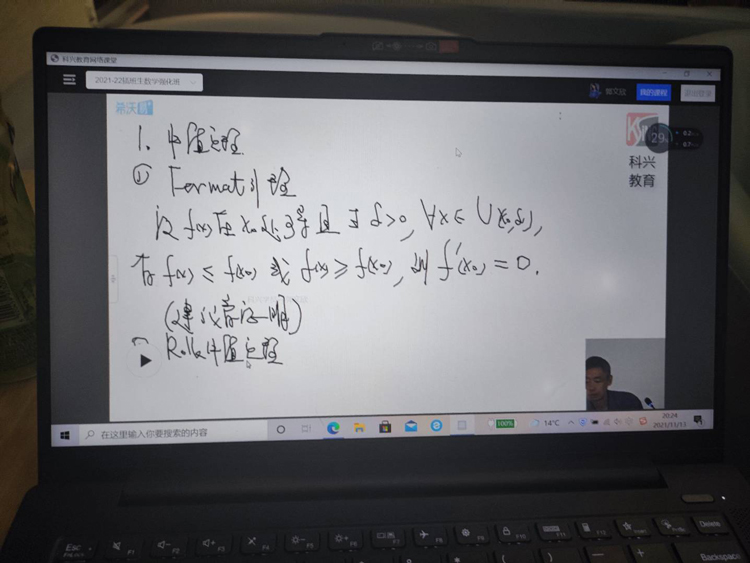 科兴教育网络课堂
2021-22插班生数学强化班
我的课程
希沃
科兴
教育
29
1. 中值定理
① Fermat引理
设 f(x)在 x₀处可导且∃δ>0, ∀x∈U(x₀,δ),
有 f(x)≤f(x₀) 或 f(x)≥f(x₀), 则 f'(x₀)=0.
(建议看证明)
Rolle中值定理
在这里输入你要搜索的内容
100%
14°C
20:24
Esc
F1
F2
F3
F4
F5
F6
F7
F8
F9
F10
F11
F12
Delete
Backspace